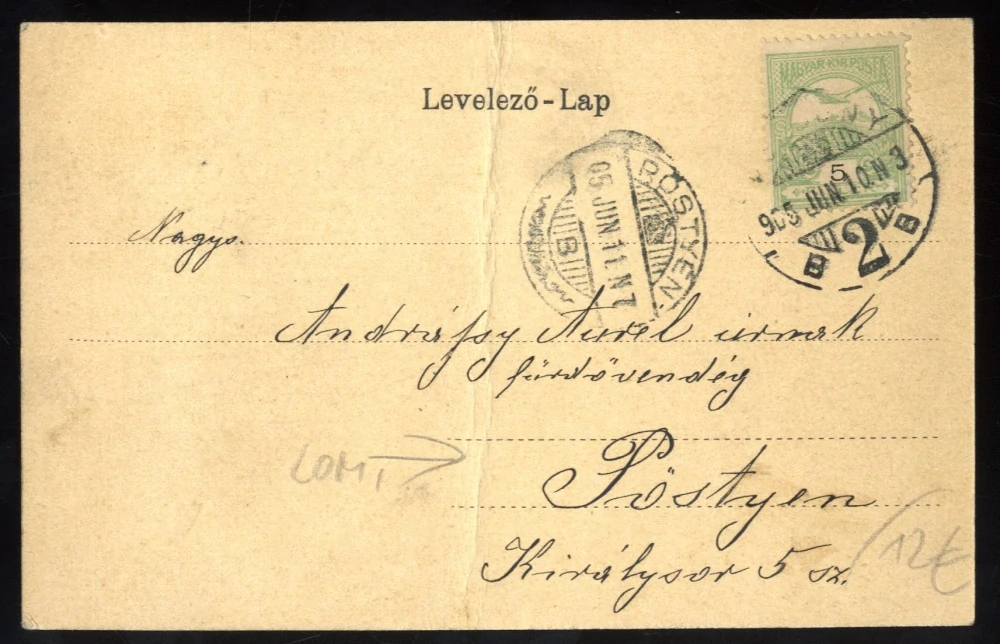 Levelező-Lap
MAGYAR KIR. POSTA
5
905 JUN 10. N 3
2
B B
PÖSTYÉN
05 JUN 11. N 7
B
Nagys.
Andrássy Aurel úrnak
fürdővendég
Pöstyén
Királysor 5 sz.
12€